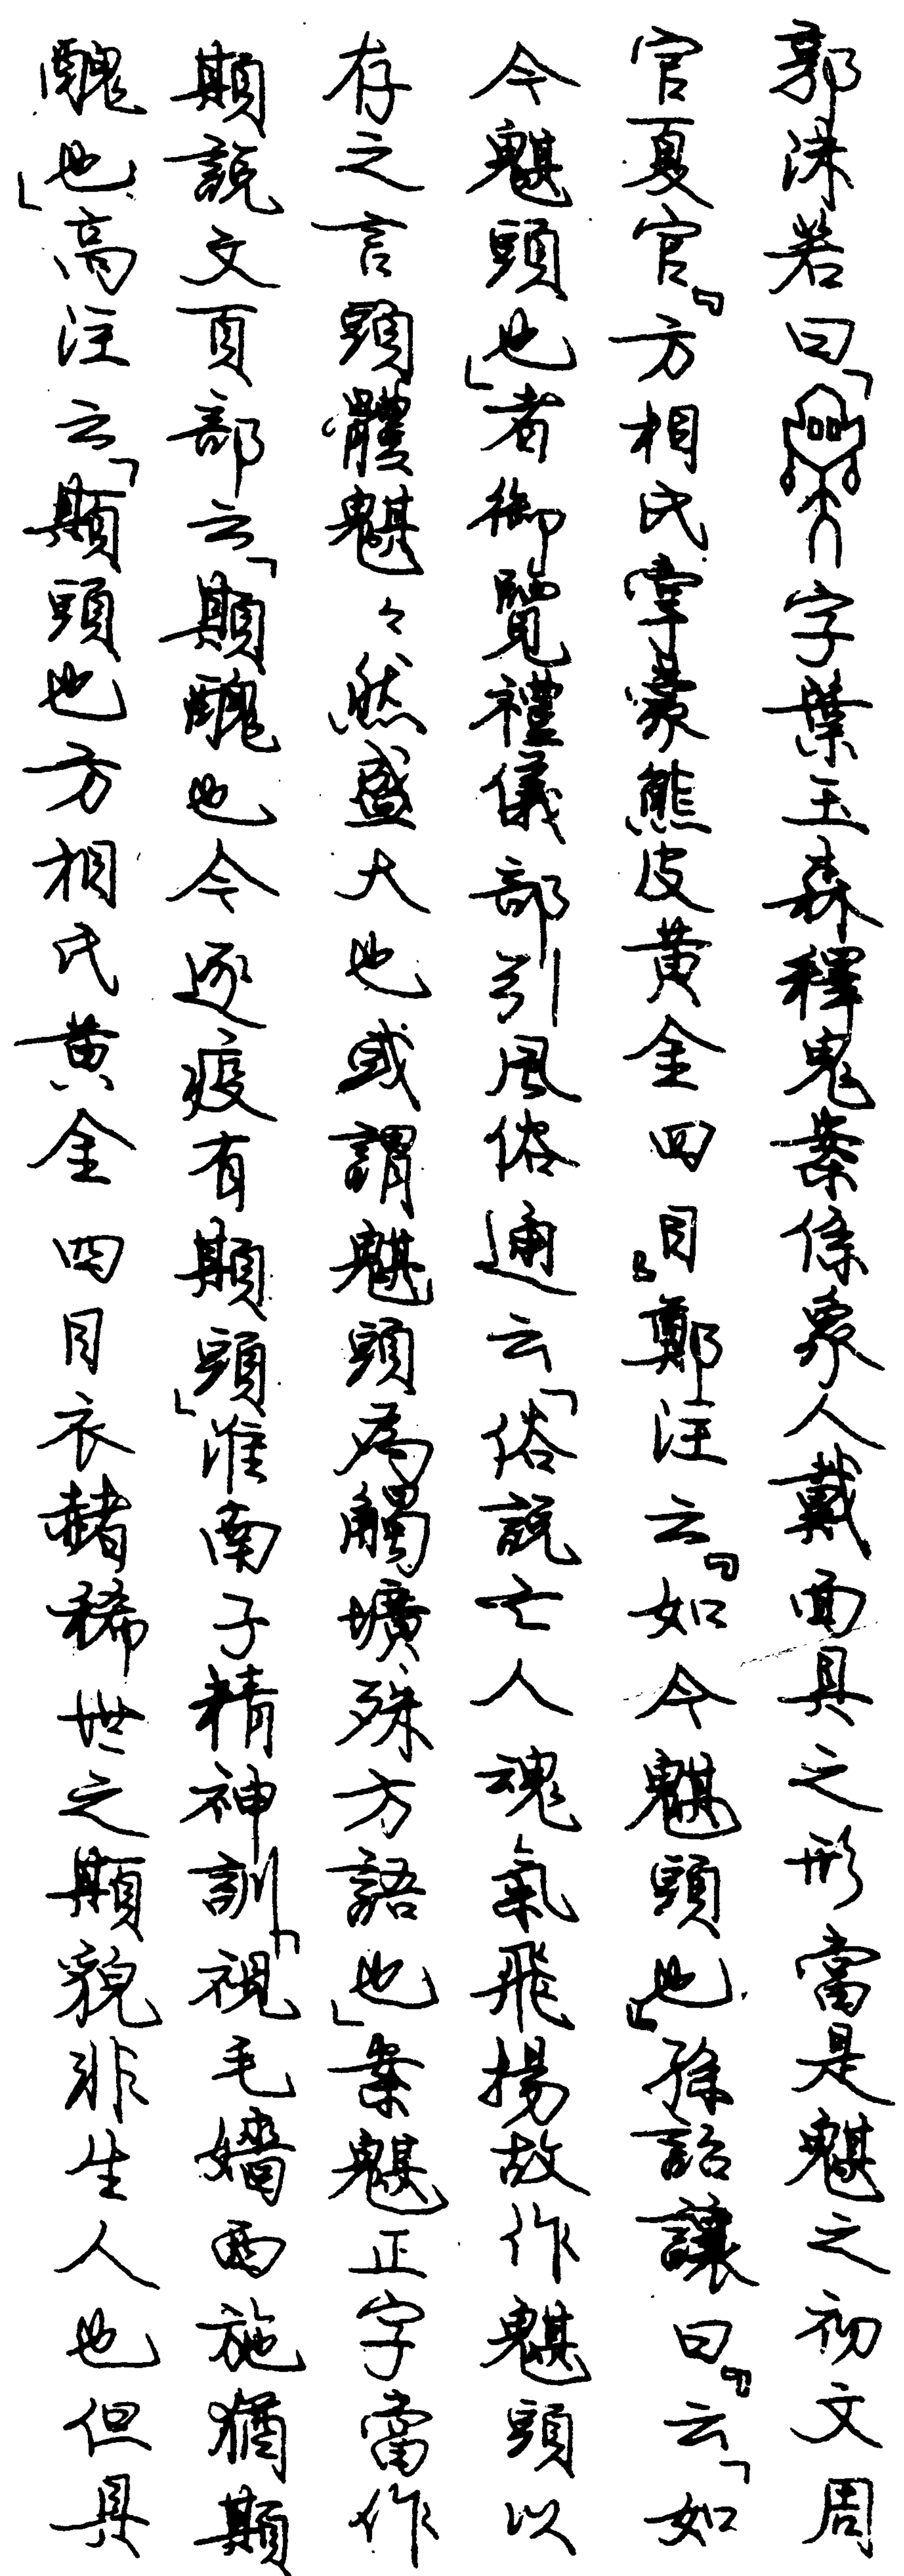 郭沫若曰「字葉玉森釋鬼案係象人戴面具之形當是魌之初文周
官夏官『方相氏掌蒙熊皮黃金四目』鄭注云『如今魌頭也』孫詒讓曰『云「如
今魌頭也」者御覽禮儀部引風俗通云「俗說亡人魂氣飛揚故作魌頭以
存之言頭體魌々然盛大也或謂魌頭為觸壙殊方語也」案魌正字當作
䫏說文頁部云「䫏醜也今逐疫有䫏頭」淮南子精神訓「視毛嬙西施猶䫏
醜也」高注云「䫏頭也方相氏黃金四目衣赭稀世之䫏貌非生人也但具